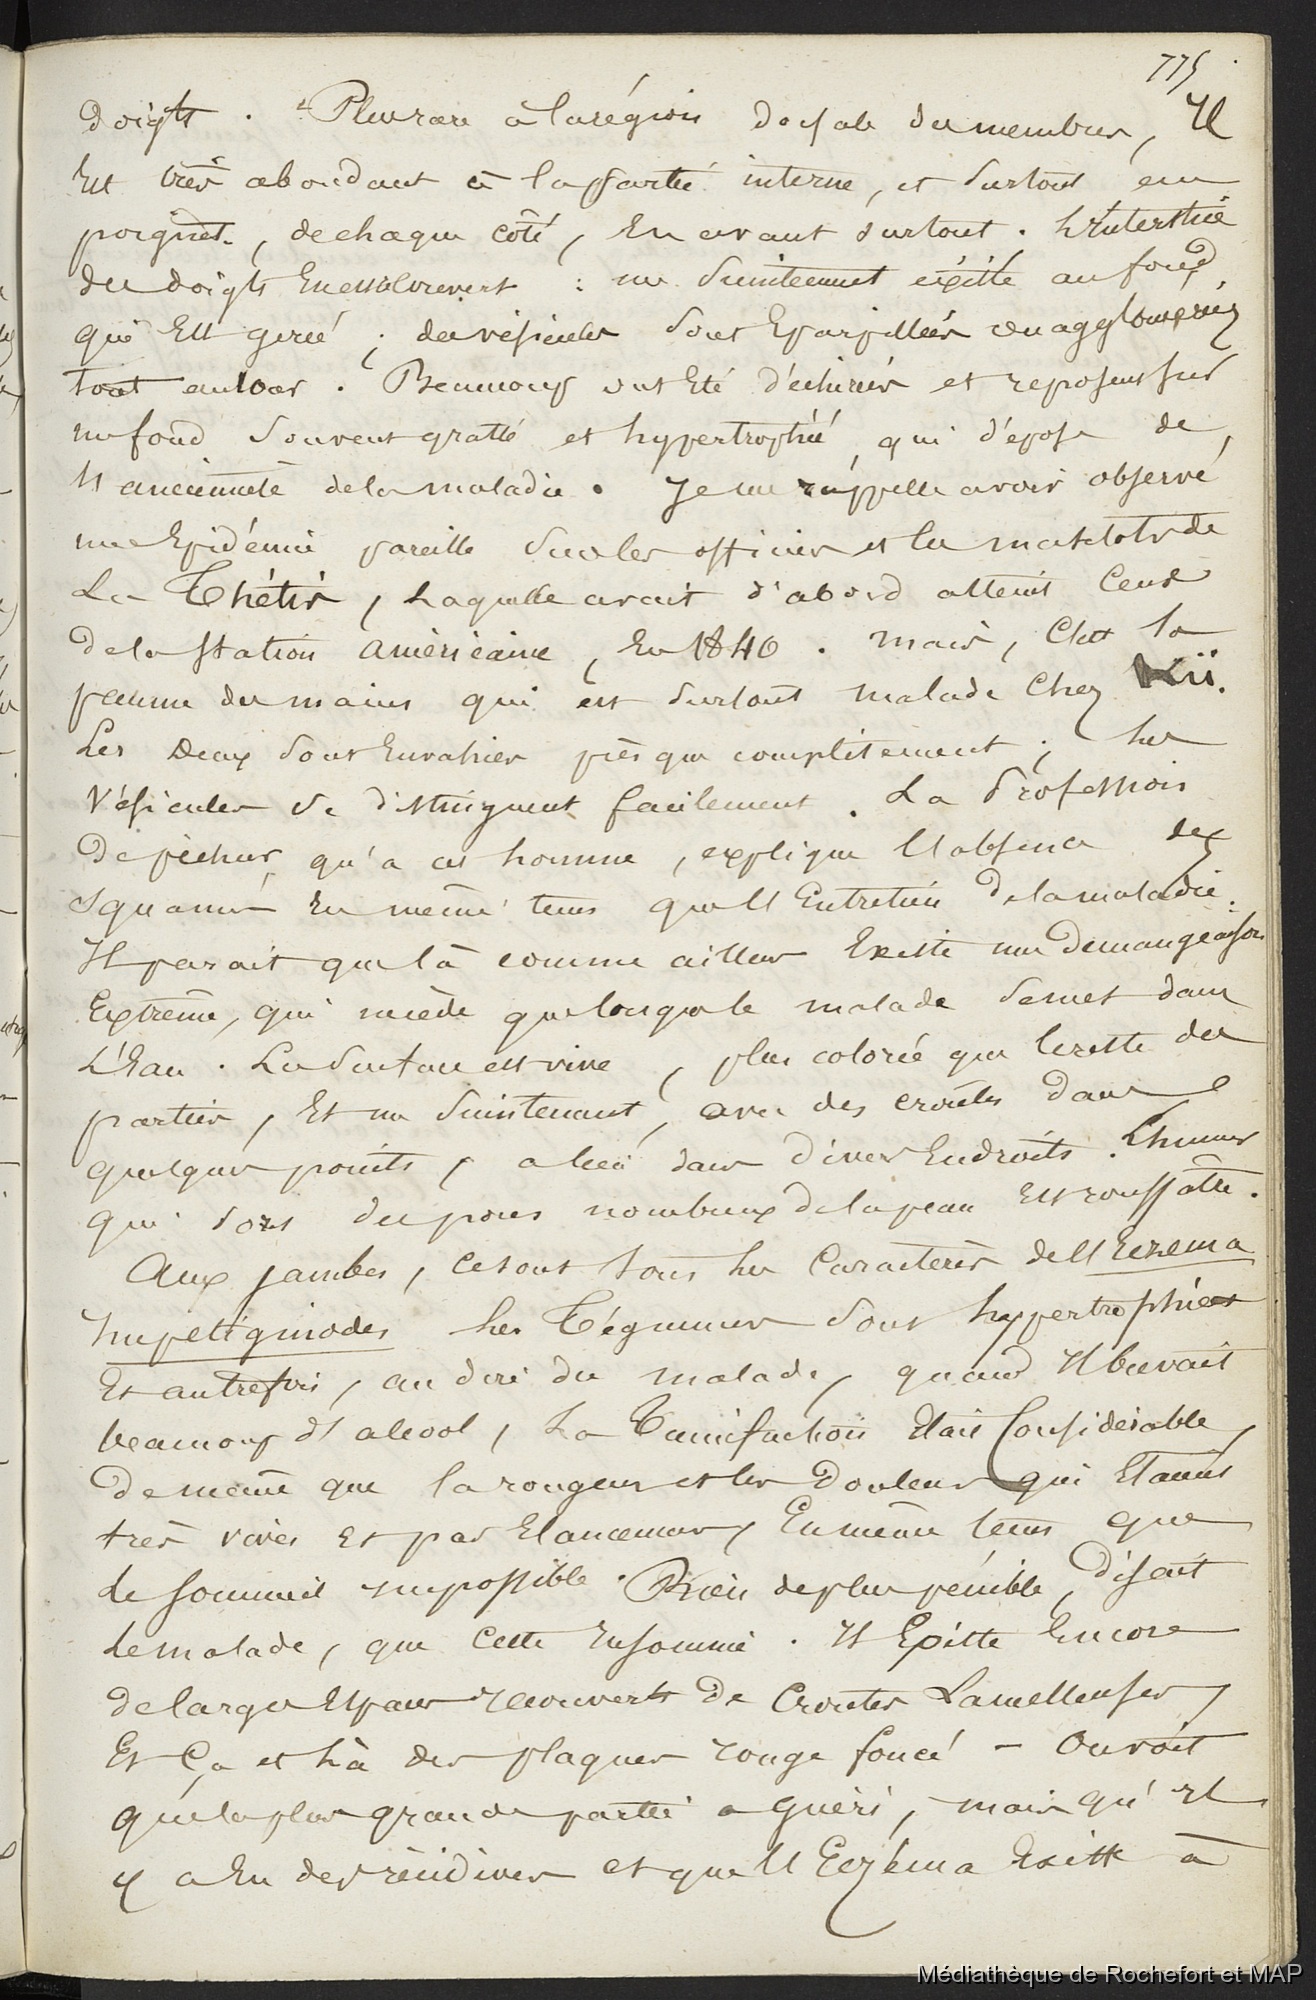 775
doigts. Plus rare à la région dorsale des membres, Il
Est très abondant à la partie interne, et surtout au
poignet, de chaque côté, En avant surtout. L'interstice
des doigts En est couvert : un suintement existe au fond
qui Est gercé ; des vésicules sont Eparpillées ou agglomérées
tout autour. Beaucoup ont Eté déchirées et reposent sur
un fond souvent gratté et hypertrophié, qui dépose de
l'ancienneté de la maladie. Je me rappelle avoir observé
une Epidémie pareille sur les officiers et les matelots de
La Thétis, Laquelle avait d'abord atteint Ceux
de la station américaine, En 1840. mais, C'est la
paume des mains qui est surtout malade chez lui.
Les Deux sont Envahies presque complètement ; les
Vésicules se distinguent facilement. La Profession
De pêcheur, qu'a cet homme, explique l'absence des
squames En même tems que l'Entretien De la maladie.
Il parait que là comme ailleurs Existe une Demangeaison
Extrême, qui ne cède que lorsque le malade se met dans
L'Eau. La surface est vive, plus colorée que le reste des
parties, Et un suintement, avec des croûtes dans
quelques points, a lieu dans Divers Endroits. L'humeur
qui sort des pores nombreux de la peau Est roussâtre.
Aux jambes, ce sont tous les Caractères de l'Eczema
Impetiginodes Les Tégumens sont hypertrophiés
Et autrefois, au dire du malade, quand Il buvait
beaucoup d'alcool, La Tumefaction était Considérable,
De même que la rougeur et les Douleurs qui Etaient
très vives Et par Elancemens, En même tems que
Le sommeil impossible. Rien de plus pénible, disait
Le malade, que Cette Insomnie. Il Existe Encore
de larges Espaces recouverts De Croûtes Lamelleuses,
Et Ça et Là des plaques rouge foncé – On voit
que la plus grande partie a guéri, mais qu'Il
y a Eu des récidives et que l'Eczéma Existe à
Médiathèque de Rochefort et MAP